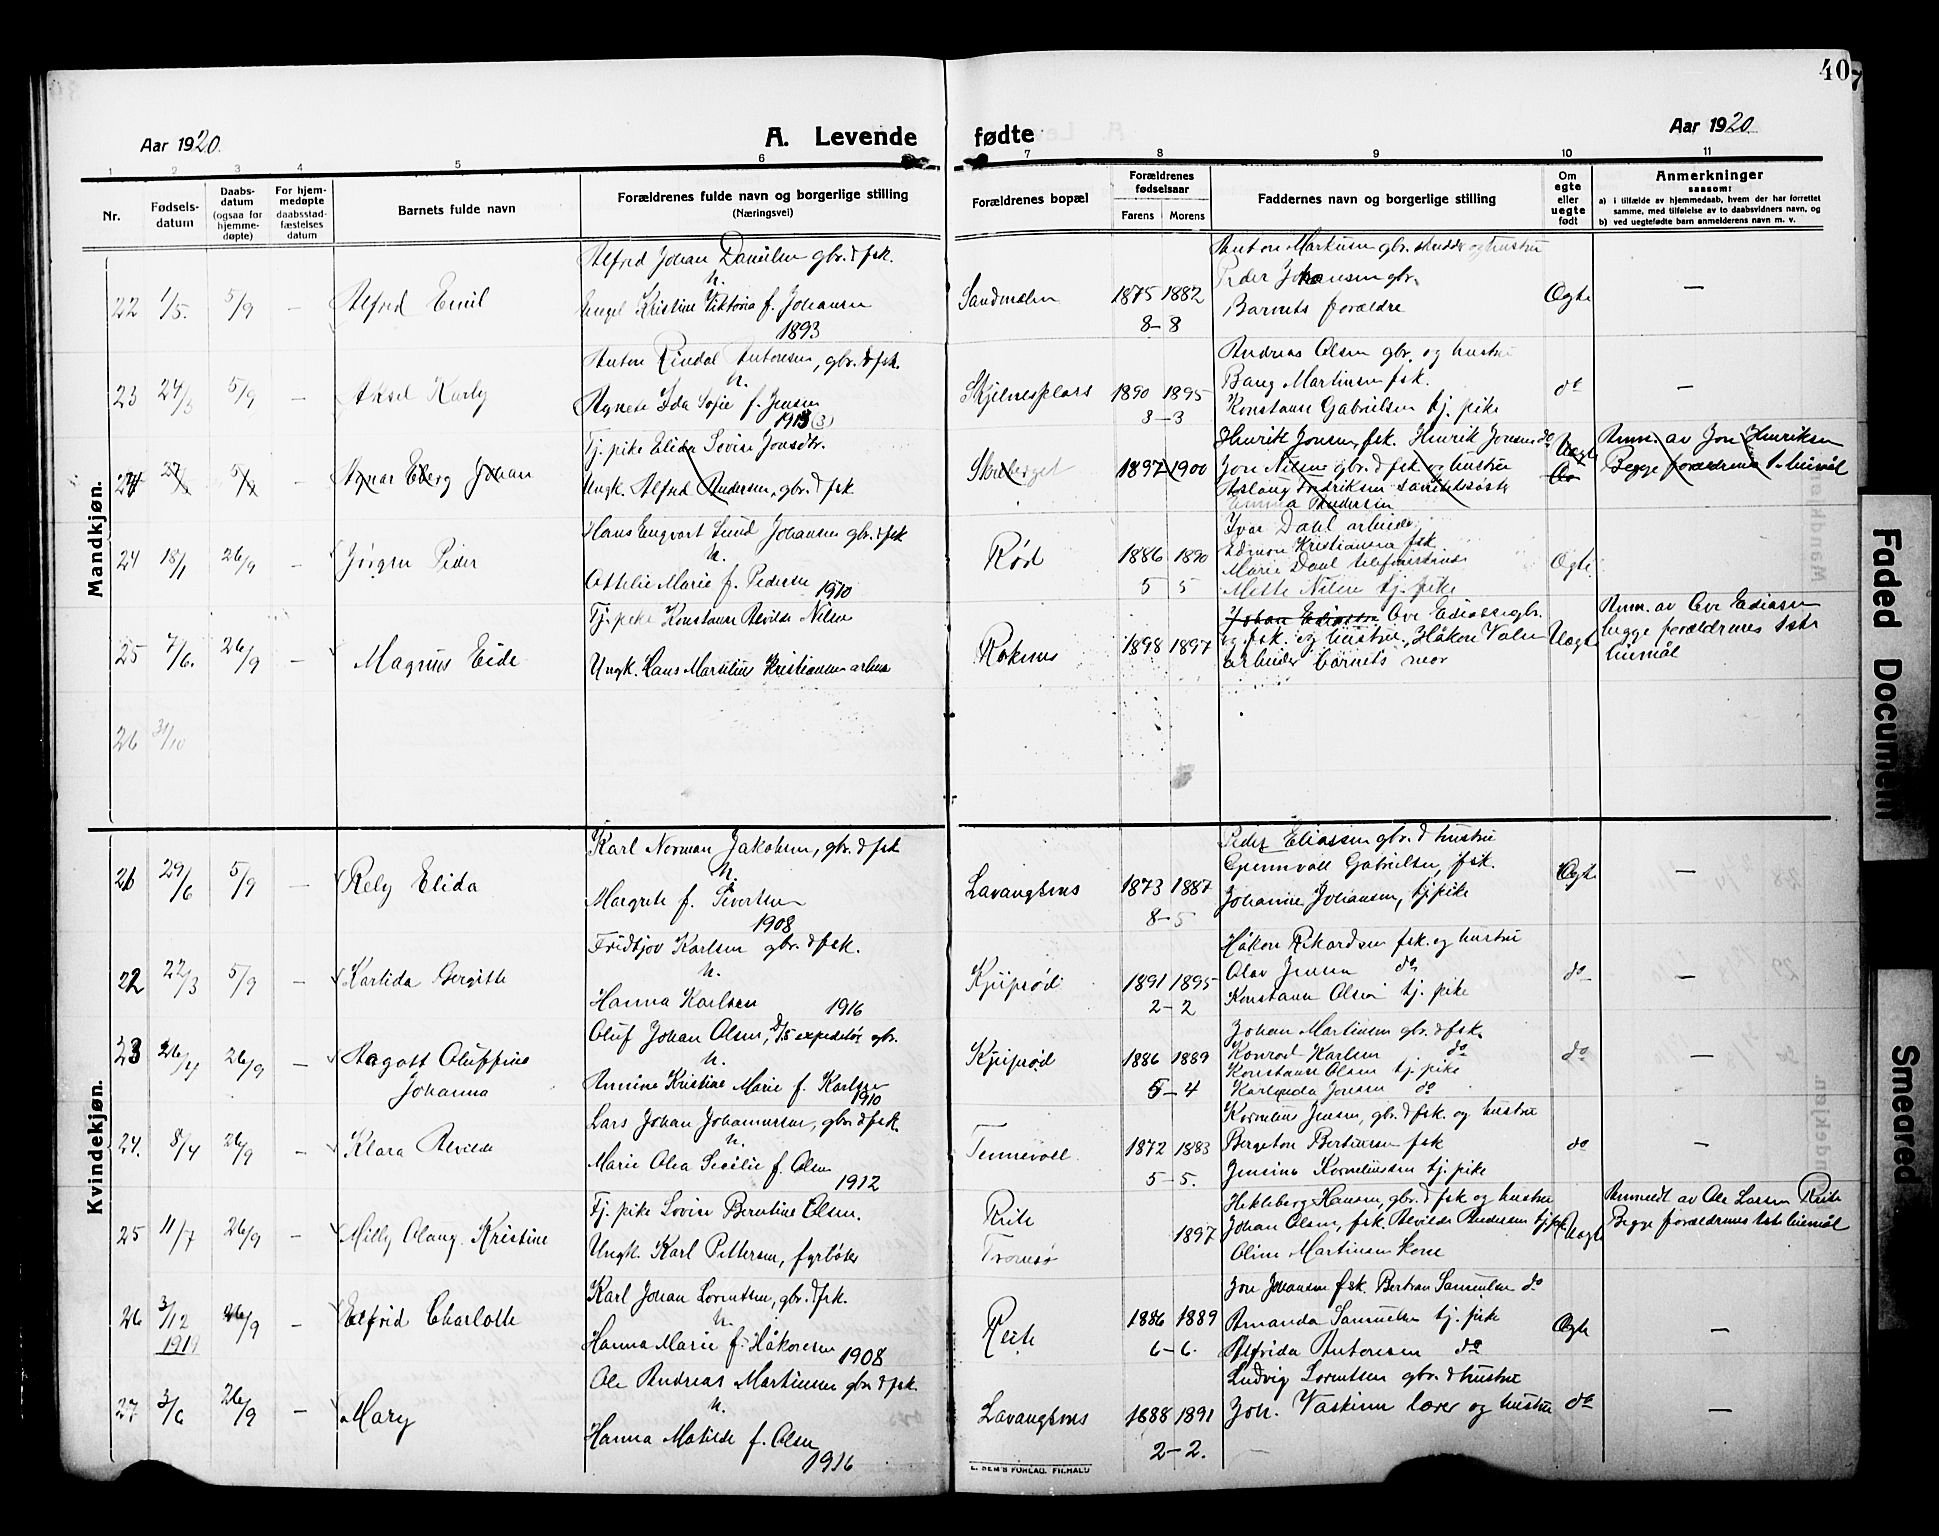 40
Aar 1920.
A. Levende fødte
Aar 1920
1 2 3 4 5 6 7 8 9 10 11
Nr.
Fødsels-
datum
Daabs-
datum
(ogsaa for
hjemme-
døpte)
For hjem-
medøpte
daabsstad-
fæstelses
datum
Barnets fulde navn
Forældrenes fulde navn og borgerlige stilling
(Næringsvei)
Forældrenes bopæl
Forældrenes
fødselsaar
Farens Morens
Faddernes navn og borgerlige stilling
Om
egte
eller
uegte
født
Anmerkninger
saasom:
a) i tilfælde av hjemmedaab, hvem der har forrettet
samme, med tilføielse av to daabsvidners navn, og
b) ved uegtefødte barn anmelderens navn m. v.
Mandkjøn.
22 1/5. 5/9 – Alfred Emil
Alfred Johan Danielsen gbr. & fsk.
h.
Kristine Viktoria f. Johansen
1893
1875 1882
8 – 8
Anton Markusen gbr. og hustru
Peder Johansen gbr.
Barnets forældre
Egte –
23 24/3 5/9 – Aksel Karly
Anton Rindal Antonsen, gbr. & fsk.
h.
Agnete Ida Sofie f. Jensen
1913 (3)
Skjelnesplass
1890 1895
3 – 3
Andreas Olsen gbr. og hustru
Bang Martinsen fsk.
Konstanse Gabrielsen tj. pike
do –
24 5/9 Agnar Eberg Johan
Tj. pike Elida Lovise Jonsdtr.
Ungk. Alfred Andersen, gbr. & fsk
Skreberget
1897 1900
Henrik Jonsen, fsk. Henrik Jonsen do
Jon Nilsen gbr. & fsk og hustru
Aslaug Fredriksen
Emma Andersen
Uegte
Anm. av Jon Henriksen
Begge forældrenes 1ste leiemål
24 18/1 26/9 – Jørgen Peder
Hans Engvart Sund Johansen gbr. & fsk
h.
Ottelie Marie f. Pedersen 1910
Rød
1886 1890
5 5
Ivar Dahl arbeider
Edmon Kristiansen fsk.
Marie Dahl
Mette Nilsen tj. pike
Egte
25 7/6. 26/9 – Magnus Eide
Tj. pike Konstanse Alvilde Nilsen
Ungk. Hans Martinus Kristiansen arbeider
Roknes
1898 1897
Johan Ediassen Ove Ediassen gbr.
og fsk. og hustru, Håkon Valen
arbeider barnets mor
Uegte
Anm. av Ove Ediasen
begge forældrenes 1ste
leiemål
26 31/10
Kvindekjøn.
21 29/6 5/9 – Rely Elida
Karl Norman Jakobsen, gbr. & fsk
h.
Margrete f. Sivertsen
1908
Lavangsnes
1873 1887
8 – 5
Peder Eliassen gbr. & hustru
Gabrielsen, fsk.
Johanne Johansen, tj. pike
Egte –
22 22/3 5/9 – Karlida Bergitte
Fridtjov Karlsen gbr. & fsk.
h.
Hanna Karlsen 1916
Kjeiprød
1891 1895
2 – 2
Håkon Rikardsen fsk. og hustru
Olav Jensen do
Konstanse Olsen tj. pike
do –
23 26/4 26/9 – Aagott Oluffine
Johanna
Oluf Johan Olsen, D/S expeditør gbr.
h.
Annine Kristine Marie f. Karlsen
1910
Kjeiprød
1886 1889
5 – 4
Johan Martinsen gbr. & fsk.
Konrad Karlsen do
Konstanse Olsen tj. pike
Jensen do
do –
24. 8/4 26/9 – Klara Alvilde
Lars Johan Johannessen, gbr. & fsk.
h.
Marie Olea Secilie f. Olsen
1912
Tennevoll
1872 1883
5 – 5.
Kornelius Jensen, gbr. & fsk. og hustru
Bergeton Bertinsen fsk
Jensine Korneliussen tj. pike
do –
25 11/7 26/9 – Milly Olaug Kristine
Tj. pike Lovise Berntine Olsen.
Ungk. Karl Pettersen, fyrbøter
Reite
Tromsø
1897
Hekleberg Hansen, gbr. & fsk og hustru
Johan Olsen, fsk. Alvilde Andersen tj. pk.
Oline Martinsen kone
Uegte
Anmeldt av Ole Larsen Reite
Begge forældrenes 1ste leiemål
26 3/12
1919 26/9 – Elfrid Charlotte
Karl Johan Lorentsen, gbr. & fsk.
h.
Hanna Marie f. Håkonsen 1908
Reite
1886 1889
6 – 6.
Jon Johansen fsk. Bertran Samuelsen do
Amanda Samuelsen tj. pike
Alfrida Antonsen do
Egte –
27 3/6 26/9 – Mary
Ole Andreas Martinsen gbr & fsk.
h.
Hanna Matilde f. Olsen
1916
Lavangsnes
1888 1891
2 – 2.
Ludvig Lorentsen gbr. & hustru
Joh. lærer og hustru
do –
E. SEM'S FORLAG, FR.HALD
Faded Document
Smeared